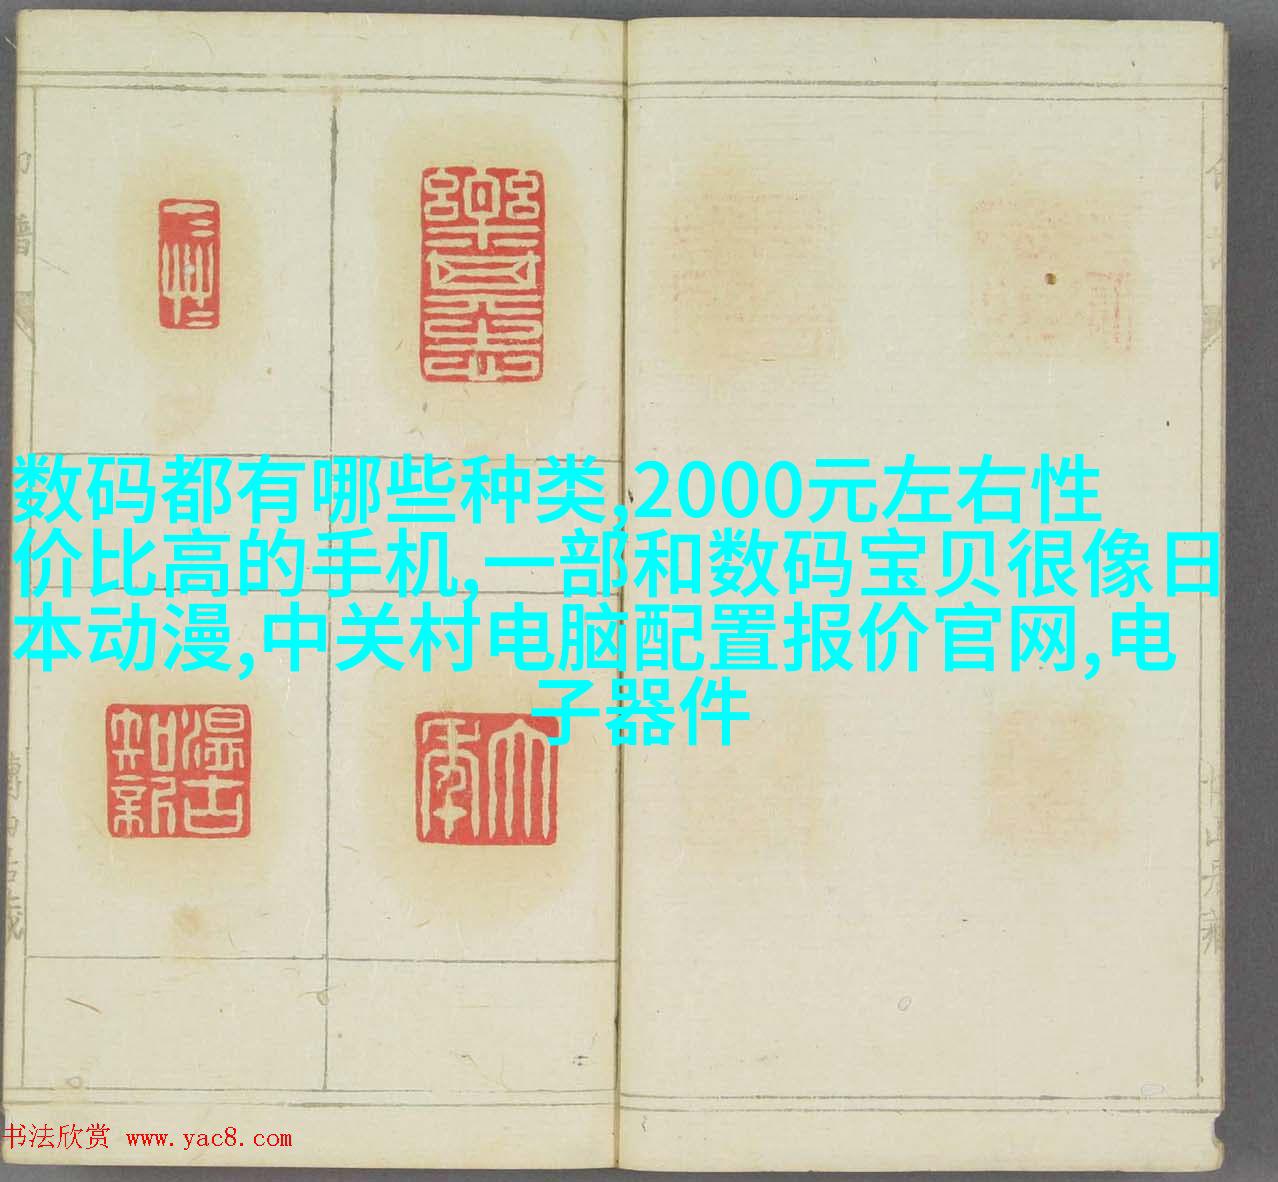 数码都有哪些种类,2000元左右性
价比高的手机,一部和数码宝贝很像日
本动漫,中关村电脑配置报价官网,电
子器件
温古
知新
大年
书法欣赏 www.yac8.com